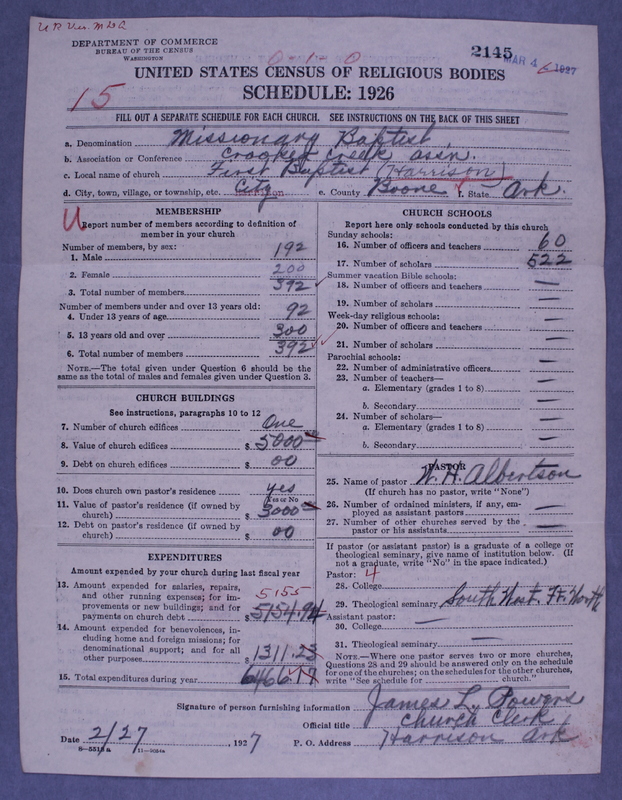 U.R. Ver. M.D.A
DEPARTMENT OF COMMERCE
BUREAU OF THE CENSUS
WASHINGTON
0-1-0
2145
MAR 4 1927
6
UNITED STATES CENSUS OF RELIGIOUS BODIES
15
SCHEDULE: 1926
FILL OUT A SEPARATE SCHEDULE FOR EACH CHURCH. SEE INSTRUCTIONS ON THE BACK OF THIS SHEET
a. Denomination Missionary Baptist
b. Association or Conference Crooked Creek assn.
c. Local name of church First Baptist (Harrison)
d. City, town, village, or township, etc. City e. County Boone f. State Ark.
MEMBERSHIP
U
Report number of members according to definition of
member in your church
Number of members, by sex:
1. Male 192
2. Female 200
3. Total number of members 392
Number of members under and over 13 years old:
4. Under 13 years of age 92
5. 13 years old and over 300
6. Total number of members 392
NOTE.—The total given under Question 6 should be the
same as the total of males and females given under Question 3.
CHURCH BUILDINGS
See instructions, paragraphs 10 to 12
7. Number of church edifices One
8. Value of church edifices $ 5000
9. Debt on church edifices $ 00
10. Does church own pastor's residence yes
Yes or No
11. Value of pastor's residence (if owned by
church) $ 3000
12. Debt on pastor's residence (if owned by
church) $ 00
EXPENDITURES
Amount expended by your church during last fiscal year
13. Amount expended for salaries, repairs,
and other running expenses; for im-
provements or new buildings; and for
payments on church debt $ 5154.94
5155
14. Amount expended for benevolences, in-
cluding home and foreign missions; for
denominational support; and for all
other purposes $ 1311.23
15. Total expenditures during year $ 6466.17
CHURCH SCHOOLS
Report here only schools conducted by this church
Sunday schools:
16. Number of officers and teachers 60
17. Number of scholars 522
Summer vacation Bible schools:
18. Number of officers and teachers —
19. Number of scholars —
Week-day religious schools:
20. Number of officers and teachers —
21. Number of scholars —
Parochial schools:
22. Number of administrative officers —
23. Number of teachers—
a. Elementary (grades 1 to 8) —
b. Secondary —
24. Number of scholars—
a. Elementary (grades 1 to 8) —
b. Secondary —
PASTOR
25. Name of pastor W. H. Albertson
(If church has no pastor, write "None")
26. Number of ordained ministers, if any, em-
ployed as assistant pastors —
27. Number of other churches served by the
pastor or his assistants —
If pastor (or assistant pastor) is a graduate of a college or
theological seminary, give name of institution below. (If
not a graduate, write "No" in the space indicated.)
Pastor: 4
28. College
29. Theological seminary South West. Ft. Worth
Assistant pastor:
30. College —
31. Theological seminary —
NOTE.—Where one pastor serves two or more churches,
Questions 28 and 29 should be answered only on the schedule
for one of the churches; on the schedules for the other churches,
write "See schedule for church."
Signature of person furnishing information James L. Powers
Official title Church Clerk
Date 2/27, 1927 P. O. Address Harrison Ark
8—5518a
11—9054a